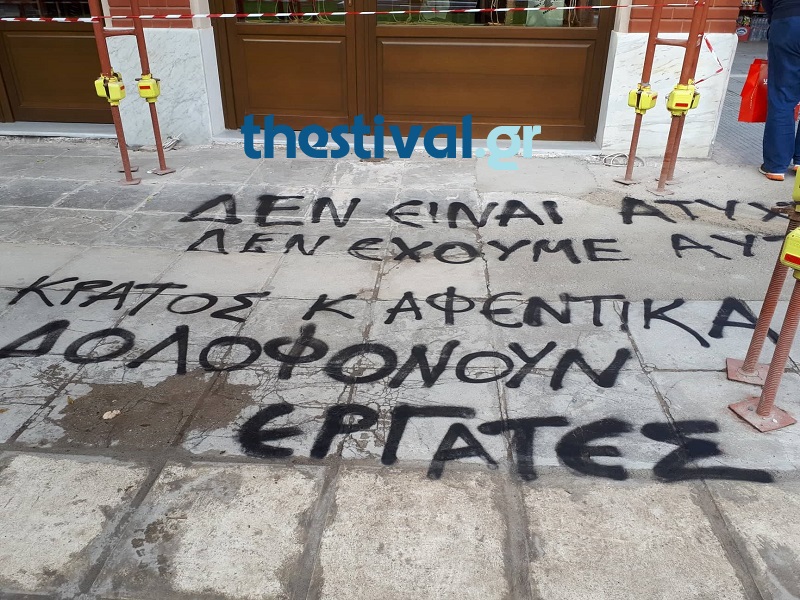 thestival.gr
ΔΕΝ ΕΙΝΑΙ ΑΤΥΧ
ΔΕΝ ΕΧΟΥΜΕ ΑΥΤ
ΚΡΑΤΟΣ Κ ΑΦΕΝΤΙΚΑ
ΔΟΛΟΦΟΝΟΥΝ
ΕΡΓΑΤΕΣ